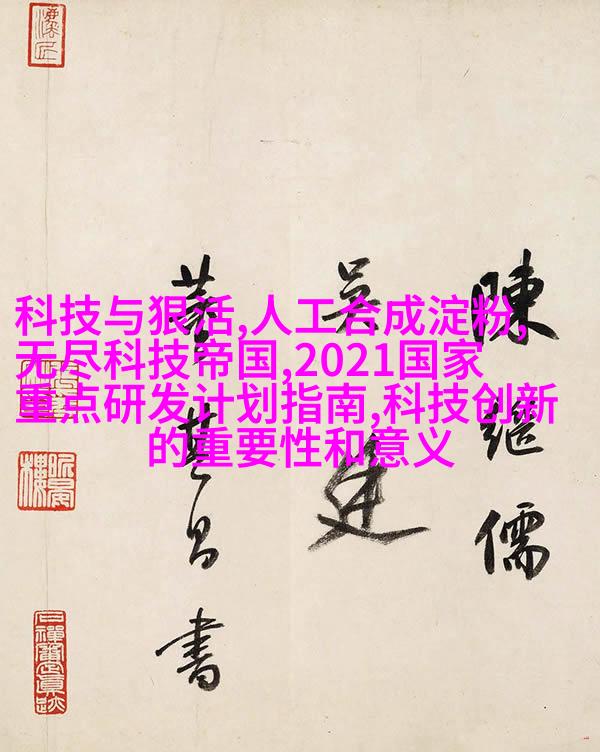 科技与狠活,人工合成淀粉,
无尽科技帝国,2021国家
重点研发计划指南,科技创新
的重要性和意义
陳繼儒
吴廷
董其昌書